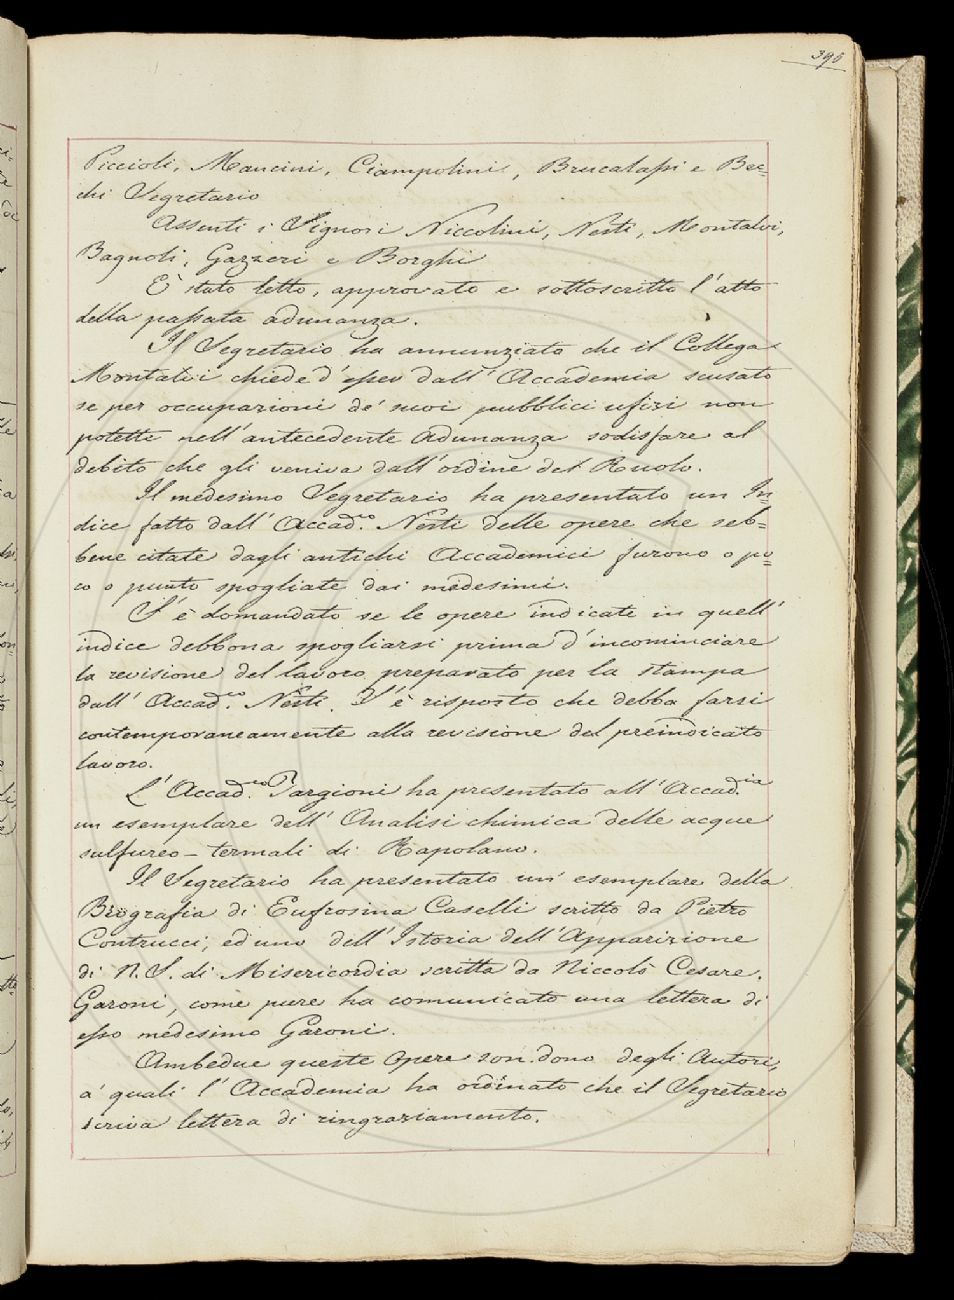 396
Piccioli, Mancini, Ciampolini, Brucalassi e Bec=
chi Segretario
Assenti i Signori Niccolini, Nesti, Montalvi,
Bagnoli, Gazzeri e Borghi
È stato letto, approvato e sottoscritto l'atto
della passata adunanza.
Il Segretario ha annunziato che il Collega
Montalvi chiede d'esser dall'Accademia scusato
se per occupazioni de' suoi pubblici ufizi non
potette nell'antecedente adunanza sodisfare al
debito che gli veniva dall'ordine del Ruolo.
Il medesimo Segretario ha presentato un In=
dice fatto dall'Accad.co Nesti delle opere che seb=
bene citate dagli antichi Accademici furono o po=
co o punto spogliate dai medesimi.
S'è domandato se le opere indicate in quell'
indice debbona spogliarsi prima d'incominciare
la revisione del lavoro preparato per la stampa
dall'Accad.co Nesti. S'è risposto che debba farsi
contemporaneamente alla revisione del preindicato
lavoro.
L'Accad.co Targioni ha presentato all'Accad.ia
un esemplare dell'Analisi chimica delle acque
sulfureo-termali di Rapolano.
Il Segretario ha presentato un'esemplare della
Biografia di Eufrosina Caselli scritto da Pietro
Contrucci, ed uno dell'Istoria dell'Apparizione
di N. S. di Misericordia scritta da Niccolò Cesare
Garoni, come pure ha comunicato una lettera di
esso medesimo Garoni.
Ambedue queste opere son dono degli Autori,
a' quali l'Accademia ha ordinato che il Segretario
scriva lettera di ringraziamento.